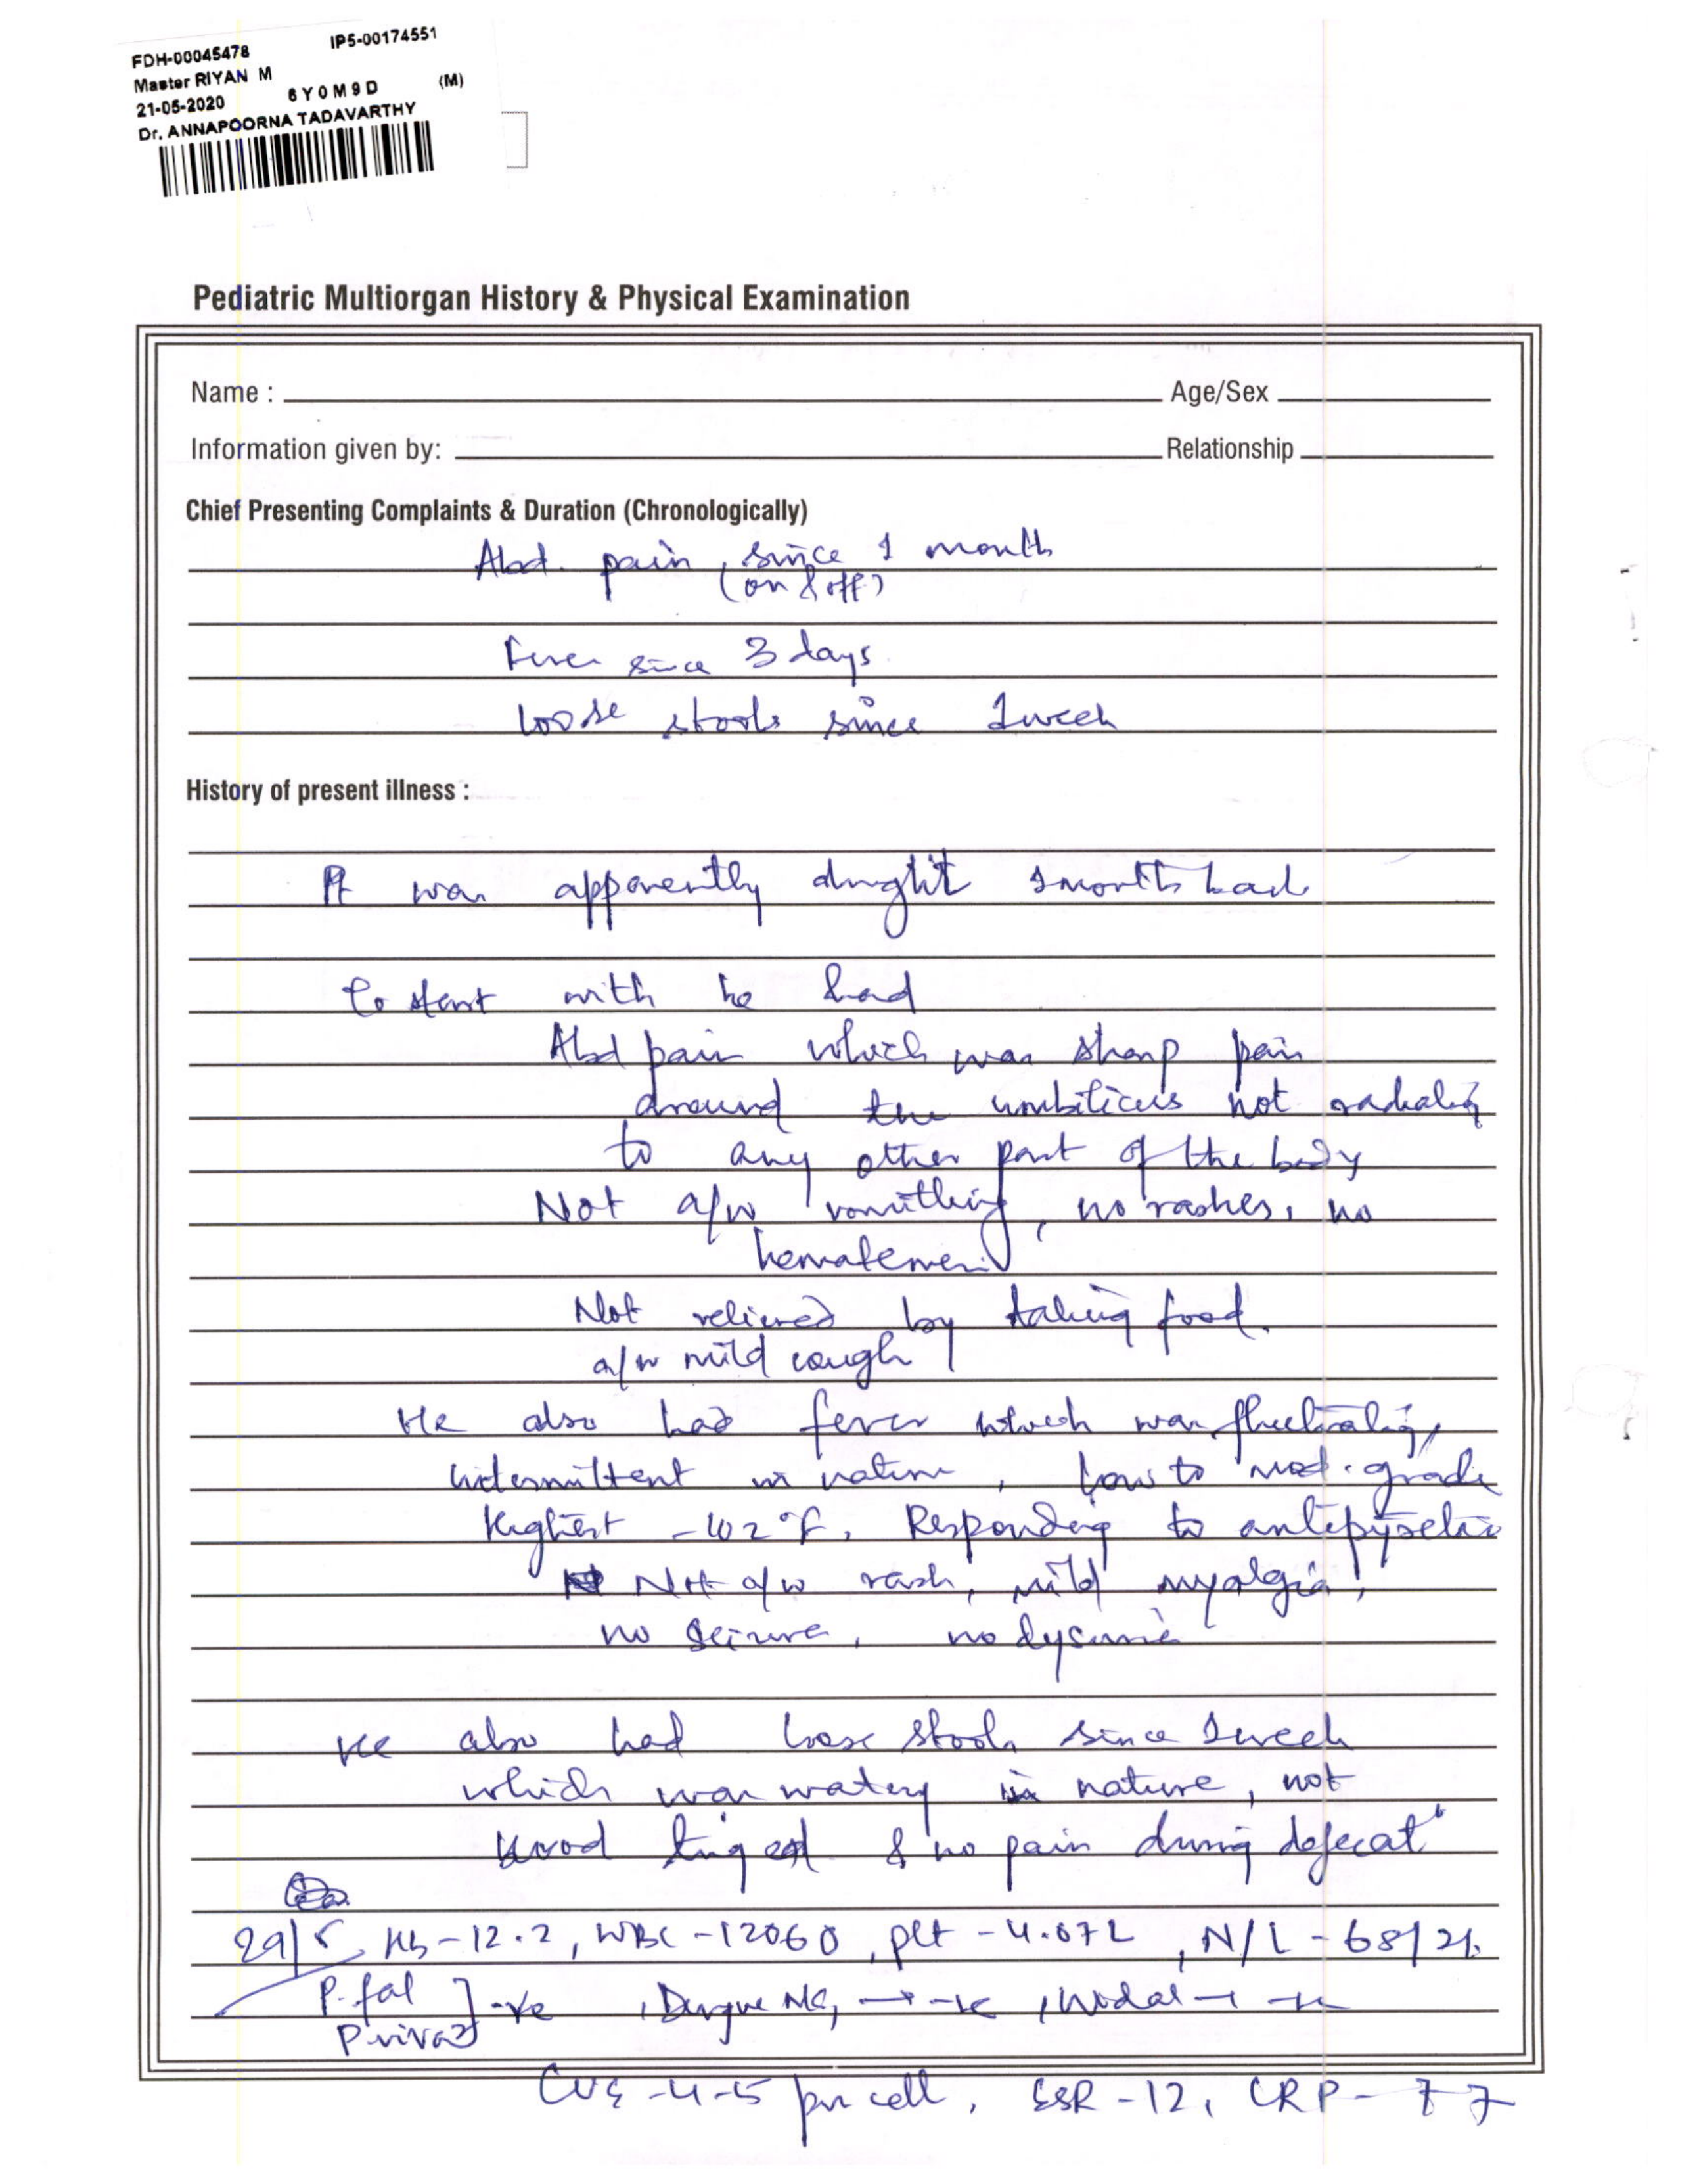 FDH-00045478 IP5-00174551
Master RIYAN M
21-05-2020 6Y0M9D (M)
Dr. ANNAPOORNA TADAVARTHY
Pediatric Multiorgan History & Physical Examination
Name : Age/Sex
Information given by: Relationship
Chief Presenting Complaints & Duration (Chronologically)
Abd. pain, since 1 month
(on & off)
Fever since 3 days
loose stools since 1 week
History of present illness :
Pt was apparently 1 month back
to start with he had
Abd pain which was sharp pain
around the umbilicus not radiating
to any other part of the body
Not a/w vomitting, no rashes, no
hematemesis
Not relieved by taking food.
a/w mild cough
He also had fever which was fluctuating,
intermittent in nature, low to mod. grade
Highest - 102°F, Responding to antipyretic
Not a/w rash, mild myalgia,
no seizure, no dysuria
He also had loose stools since 1 week
which was watery in nature, not
blood tinged & no pain during defecatn
29/5 Hb-12.2, WBC-12060, plt-4.07L, N/L-68/21
P. fal
P. vivax ] -ve, Dengue NS1 → -ve, Widal → -ve
CUE-4-5 pus cell, ESR-12, CRP-77